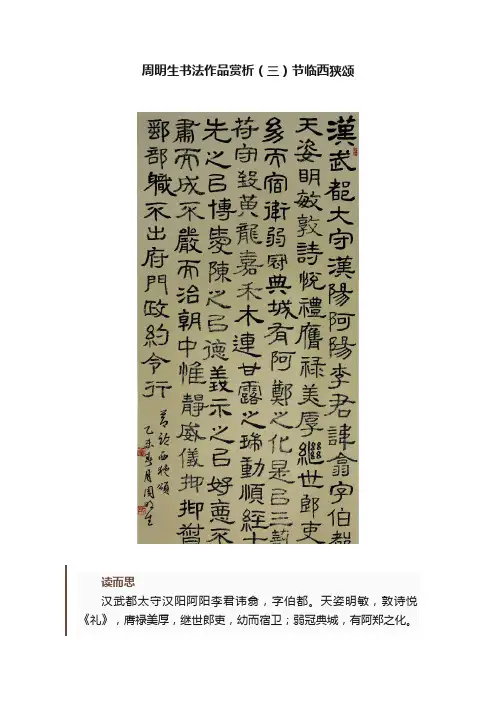 周明生书法作品赏析（三）节临西狭颂
漢武都大守漢陽阿陽李君諱翕字伯都
天姿明敏敦詩悅禮膺禄美厚繼世郎吏
幼而宿衛弱冠典城有阿鄭之化是㠯三剖
苻守致黄龍嘉禾木連甘露之瑞動順經古
先之㠯博愛陳之㠯德義示之㠯好惡不
肅而成不嚴而治朝中惟靜威儀抑抑督
郵部職不出府門政約令行
節臨西狹頌
乙未夏月周明生
读而思
汉武都太守汉阳阿阳李君讳翕，字伯都。天姿明敏，敦诗悦
《礼》，膺禄美厚，继世郎吏，幼而宿卫；弱冠典城，有阿郑之化。